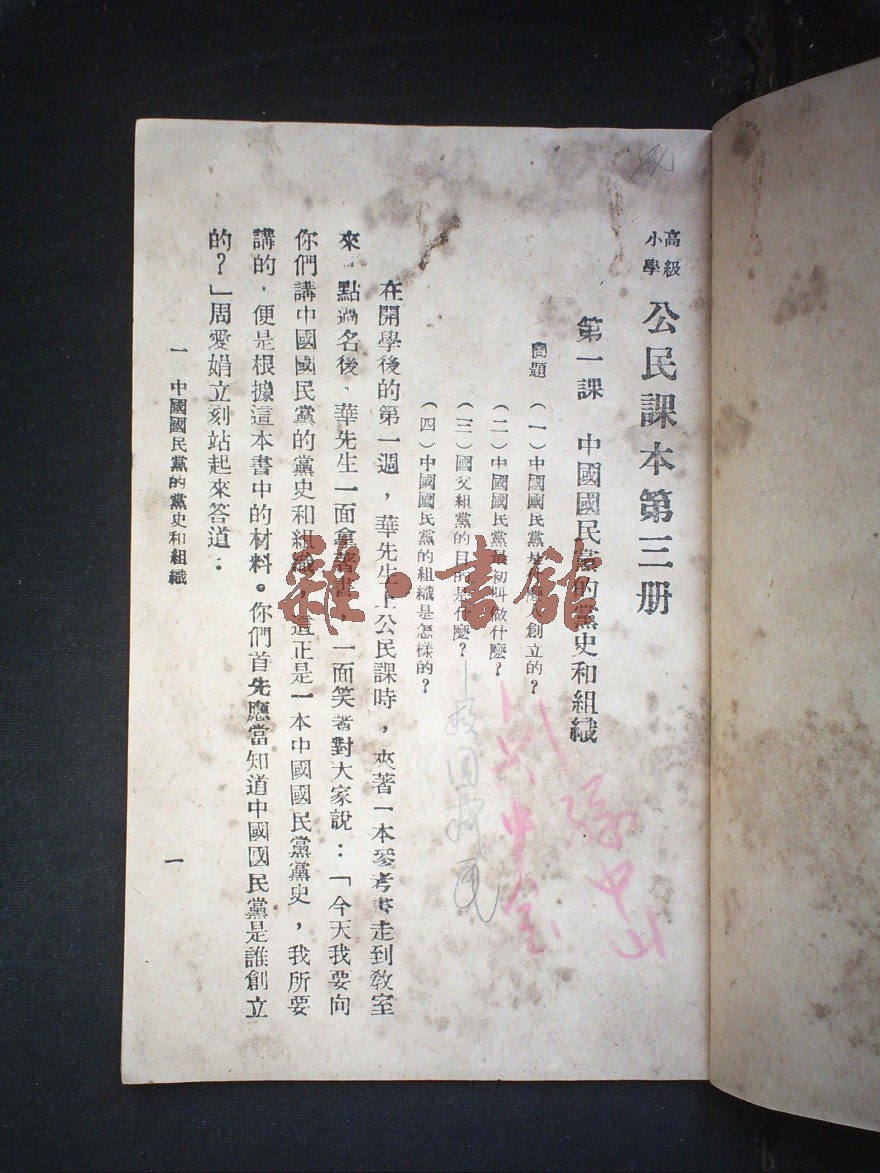 高級
小學
公民課本第三册
第一課 中國國民黨的黨史和組織
問題 (一)中國國民黨是什麼人創立的?
(二)中國國民黨最初叫做什麼?
(三)國父組黨的目的是什麼?
(四)中國國民黨的組織是怎樣的?
孫中山
興中會
在開學後的第一週,華先生上公民課時,夾著一本參考書走到教室
來,點過名後,華先生一面拿著書,一面笑著對大家說:「今天我要向
你們講中國國民黨的黨史和組織,這正是一本中國國民黨黨史,我所要
講的,便是根據這本書中的材料。你們首先應當知道中國國民黨是誰創立
的?」周愛娟立刻站起來答道:
一 中國國民黨的黨史和組織
一
雜·書館